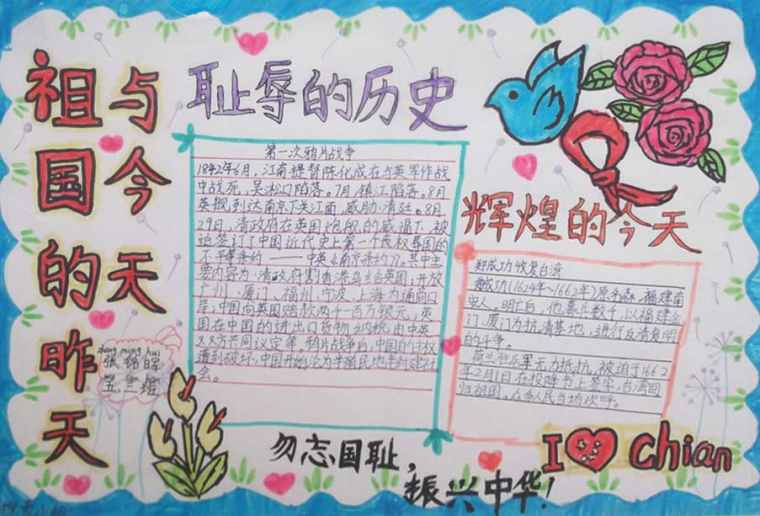 祖国的昨天
与今天
耻辱的历史
第一次鸦片战争
1842年6月,江南提督陈化成在与英军作战
中战死,吴淞口陷落。7月,镇江陷落。8月
英舰到达南京下关江面,威胁清廷。8月
29日,清政府在英国炮舰的威逼下,被
迫签订了中国近代史上第一个丧权辱国的
不平等条约——中英《南京条约》。其中主
要内容为:清政府割香港岛给英国,开放
广州、厦门、福州、宁波、上海为通商口
岸,中国向英国赔款两千一百万银元,英
国在中国的进出口货物纳税,由中英
双方共同议定等。鸦片战争后,中国的主权
遭到破坏,中国开始沦为半殖民地半封建社
会。
辉煌的今天
郑成功恢复台湾
郑成功(1624年~1662年)原名森,福建南
安人,明亡后,他募兵数千,以福建金
门、厦门为抗清基地,进行反清复明
的斗争。
荷兰侵兵军无力抵抗,被迫于1662
年2月1日在投降书上签字,台湾回
归祖国,人民
勿忘国耻,
振兴中华!
I Chian